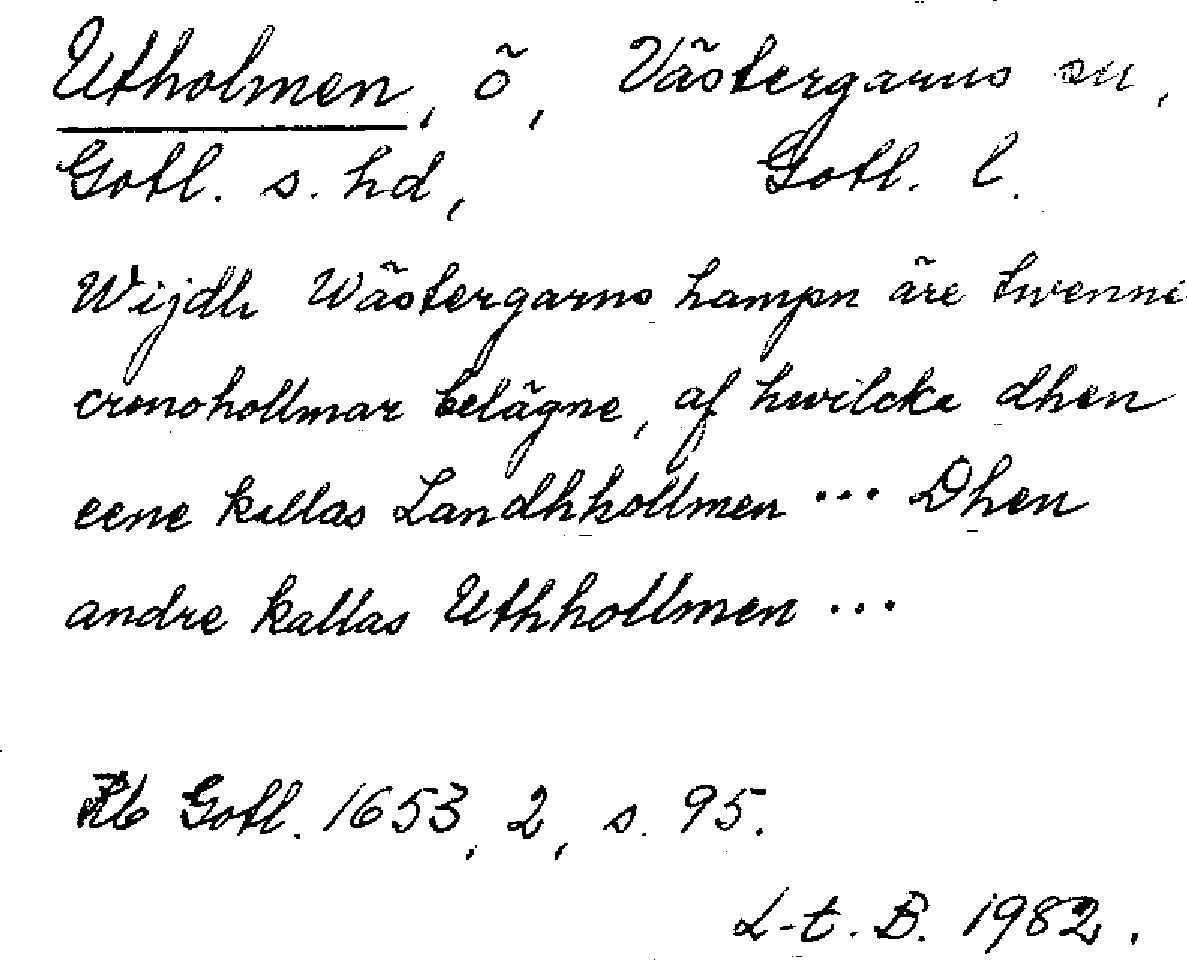 Utholmen, ö, Västergarns sn,
Gotl. s. hd, Gotl. l.
Wijdh Wästergarns hampn äre twenne
cronohollmar belägne, af hwilcka dhen
eene kallas Landhhollmen ... Dhen
andre kallas Uthhollmen ...
Rb Gotl. 1653, 2, s. 95.
L-t. B. 1982.